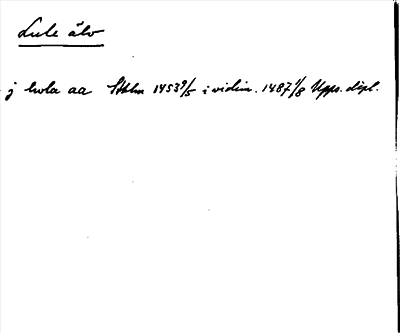 Lule älv
j lwla aa Sthlm 1453 9/5 i vidim. 1487 1/8 Upps. dipl.